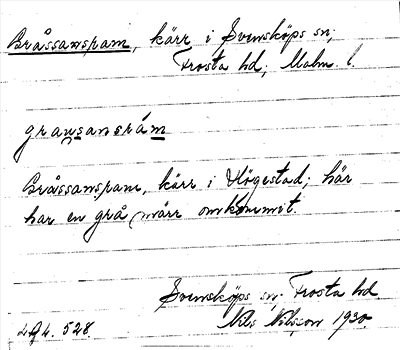 Gråssansram, kärr i Svensköps sn;
Frosta hd; Malm. l.
grausansrám
Gråssansram, kärr i Högestad; här
har en grå märr omkommit.
Svensköps sn. Frosta hd.
Nils Nilsson 1930.
294.528